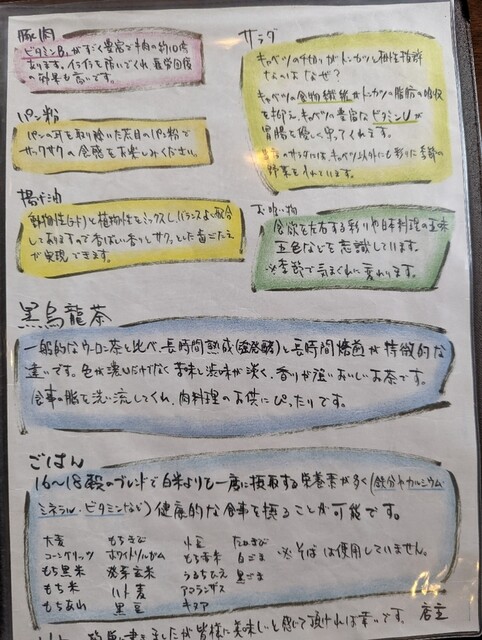 豚肉
ビタミンB₁がすごく豊富で牛肉の約10倍
あります。イライラを防いでくれ、疲労回復
の効果も高いです。
パン粉
パンの耳を取り除いた太目のパン粉で
サクサクの食感をお楽しみください。
揚げ油
動物性(ラード)と植物性をミックスし、バランスよく配合
してありますので香ばしい香りとサクッとした歯ごたえ
が実現できます。
サラダ
キャベツの千切りがトンカツと相性抜群
なのはなぜ?
キャベツの食物繊維がトンカツの脂肪の吸収
を抑え、キャベツの豊富なビタミンUが
胃腸を優しく守ってくれます。
のサラダには、キャベツ以外にも彩りと季節の
野菜を入れています。
お吸い物
食欲を左右する彩りや日本料理の五味
五色などを意識しています。
※季節で気まぐれに変わります。
黒烏龍茶
一般的なウーロン茶と比べ、長時間熟成(強発酵)と長時間焙煎が特徴的な
違いです。色が濃いだけでなく苦味と渋味が深く、香りが強いおいしいお茶です。
食事の脂を洗い流してくれ、肉料理のお供にぴったりです。
ごはん
16〜18穀のブレンドで白米よりも一度に摂取する栄養素が多く(鉄分やカルシウム、
ミネラル・ビタミンなど)健康的な食事を摂ることが可能です。
大麦 もちきび 小豆 たかきび
コーングリッツ ホワイトソルガム もち赤米 白ごま ※そばは使用していません。
もち黒米 発芽玄米 うるちひえ 黒ごま
もち米 ハト麦 アマランサス
もちあわ 黒豆 キヌア
書きましたが皆様に美味しいと感じて頂ければ幸いです。 店主